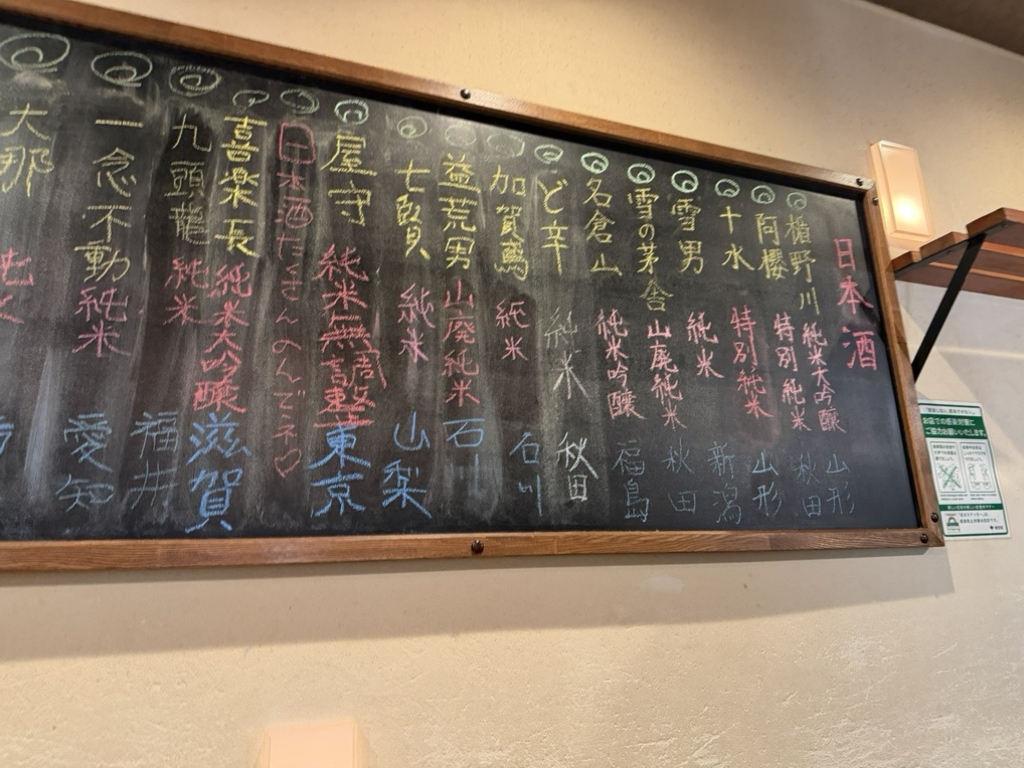 日本酒
楯野川 純米大吟醸 山形
阿櫻 特別純米 秋田
十水 特別純米 山形
雪男 純米 新潟
雪の茅舎 山廃純米 秋田
名倉山 純米吟醸 福島
ど辛 純米 秋田
加賀鳶 純米 石川
益荒男 山廃純米 石川
七賢 純米 山梨
屋守 純米無調整 東京
日本酒たくさんのんでネ♡
喜楽長 純米大吟醸 滋賀
九頭龍 純米 福井
一念不動 純米 愛知
大那
お店での感染対策に
ご協力お願いいたします。